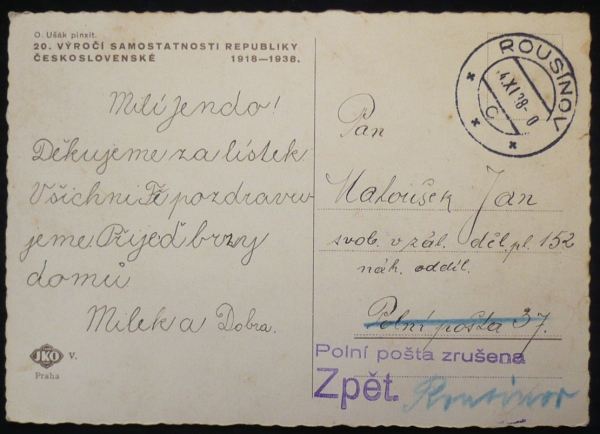 O. Ušák pinxit.
20. VÝROČÍ SAMOSTATNOSTI REPUBLIKY
ČESKOSLOVENSKÉ 1918—1938.
Milí Jendo!
Děkujeme za lístek
Všichni Tě pozdravu-
jeme Přijeď brzy
domů
Milek a Dobra.
JKO V.
Praha
ROUSÍNOV
4.XI.38
C
Pan
Matoušek Jan
svob. v zál. děl. pl. 152
náh. oddíl.
Polní pošta 37.
Polní pošta zrušena
Zpět. Rousínov